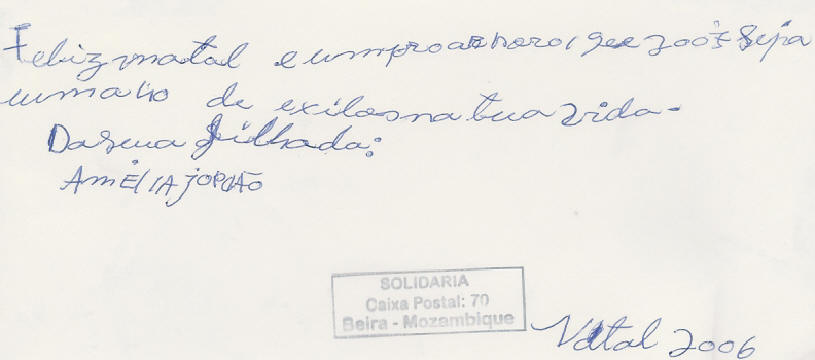 Feliz natal e um proasnoro, que 2007 seja
um ano de exilos na tua vida.
Da sua filhada:
AmÉliA jordão
SOLIDARIA
Caixa Postal: 70
Beira - Mozambique
Natal 2006